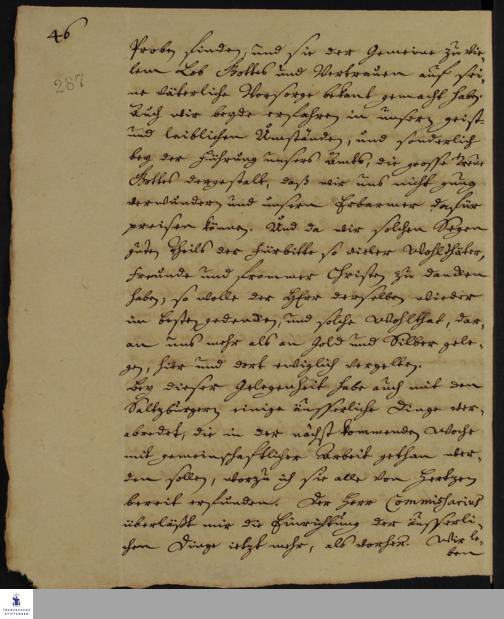 46
287
Proben finden, und sie der Gemeine zu vie-
lem Lob Gottes und Vertrauen auf sei-
ne väterliche Vorsorge bekant gemacht haben.
Auch wir beyde erfahren in unsern geist-
und leiblichen Umständen, und sonderlich
bey der Führung unsers Amts, die grosse Treue
Gottes dergestalt, daß wir uns nicht gnug
verwundern und unsern Erbarmer dafür
preisen können. Und da wir solchen Segen
guten Theils der Fürbitte so vieler Wohlthäter,
Freunde und frommer Christen zu dancken
haben; so wolle der HErr derselben wieder
im besten gedencken, und solche Wohlthat, dar-
an uns mehr als an Gold und Silber gele-
gen, hier und dort ewiglich vergelten.
Bey dieser Gelegenheit habe auch mit den
Saltzburgern einige äusserliche Dinge ver-
abredet, die in der nächst kommenden Woche
mit gemeinschaftlicher Arbeit gethan wer-
den sollen, worzu ich sie alle von Hertzen
bereit erfunden. Der Herr Commissarius
überläßt mir die Einrichtung der äusserli-
chen Dinge ietzt mehr, als vorher. Wir le-
ben
FRANCKESCHE
STIFTUNGEN